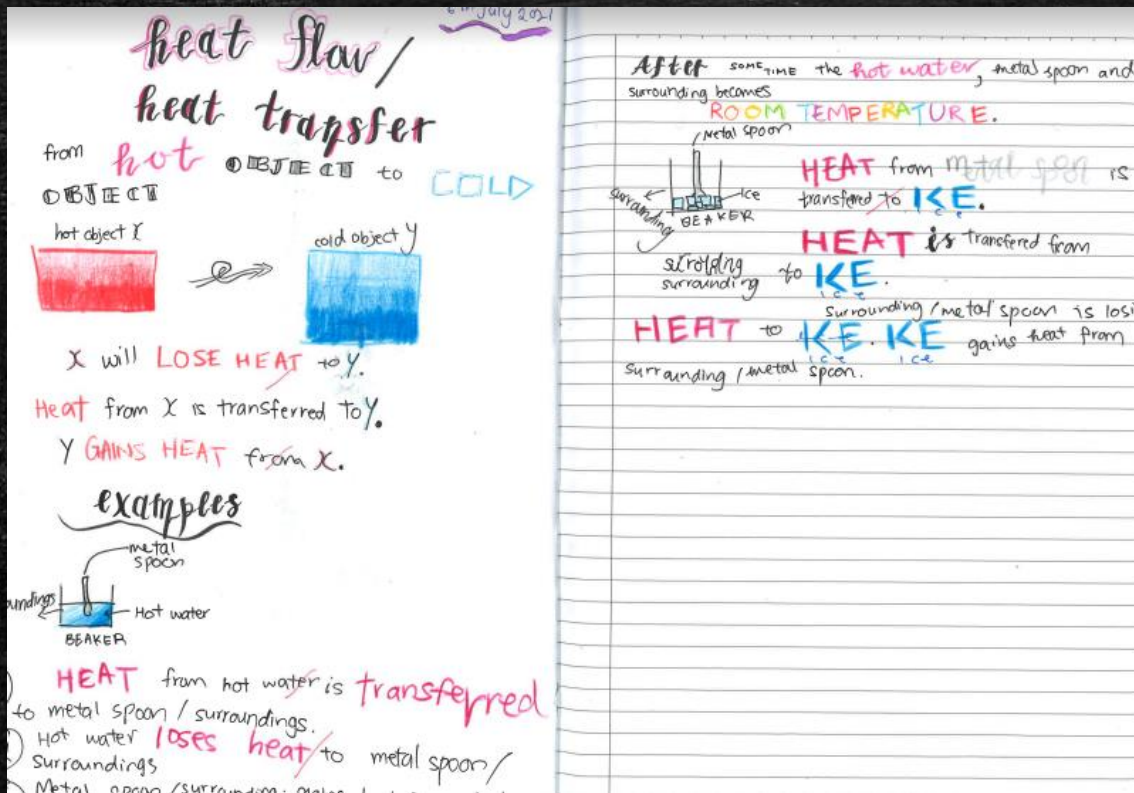 July 2021
heat flow/
heat transfer
from hot OBJECT to COLD
OBJECT
hot object X
cold object Y
X will LOSE HEAT to Y.
Heat from X is transferred to Y.
Y GAINS HEAT from X.
examples
metal
spoon
oundings
Hot water
BEAKER
HEAT from hot water is transferred
to metal spoon / surroundings.
Hot water loses heat to metal spoon /
surroundings
Metal spoon / surroundings gains
After SOME TIME the hot water, metal spoon and
surrounding becomes
ROOM TEMPERATURE.
Metal spoon
surrounding
Ice
BEAKER
HEAT from metal spon is
transfered to ICE.
ice
HEAT is transfered from
surrounding to ICE.
ice
surrounding / metal spoon is losi
HEAT to ICE. ICE gains heat from
ice ice
surrounding / metal spoon.